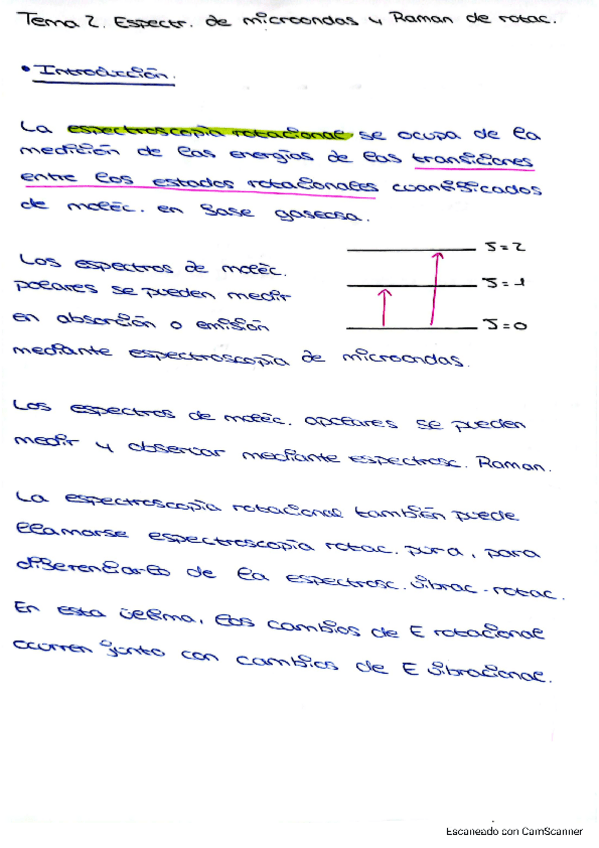 Tema 2. Espectr. de microondas y Raman de rotac.
• Introducción.
La espectroscopía rotacional se ocupa de la
medición de las energías de las transiciones
entre los estados rotacionales cuantificados
de moléc. en fase gaseosa.
Los espectros de moléc.
polares se pueden medir
en absorción o emisión
mediante espectroscopía de microondas.
J=2
J=1
J=0
Los espectros de moléc. apolares se pueden
medir y observar mediante espectrosc. Raman.
La espectroscopía rotacional también puede
llamarse espectroscopía rotac. pura, para
diferenciarlo de la espectrosc. vibrac-rotac.
En esta última, los cambios de E rotacional
ocurren junto con cambios de E vibracional.
Escaneado con CamScanner